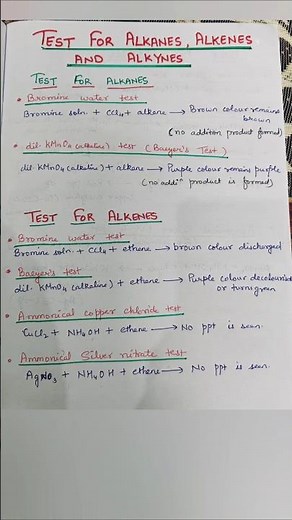 TEST FOR ALKANES, ALKENES
AND ALKYNES
TEST FOR ALKANES
• Bromine water test
Bromine soln + CCl4 + alkane → Brown colour remains
brown
(no additon product formed)
• dil. KMnO4 (alkaline) test (Baeyer's Test)
dil. KMnO4 (alkaline) + alkane → Purple colour remain purple
(no addiⁿ product is formed)
TEST FOR ALKENES
• Bromine water test
Bromine soln. + CCl4 + ethene → brown colour discharged
• Baeyer's test
dil. KMnO4 (alkaline) + ethene → Purple colour decolourised
or turns green
• Ammonical copper chloride test
CuCl2 + NH4OH + ethene → No ppt is seen.
• Ammonical Silver nitrate test
AgNO3 + NH4OH + ethene → No ppt is seen.